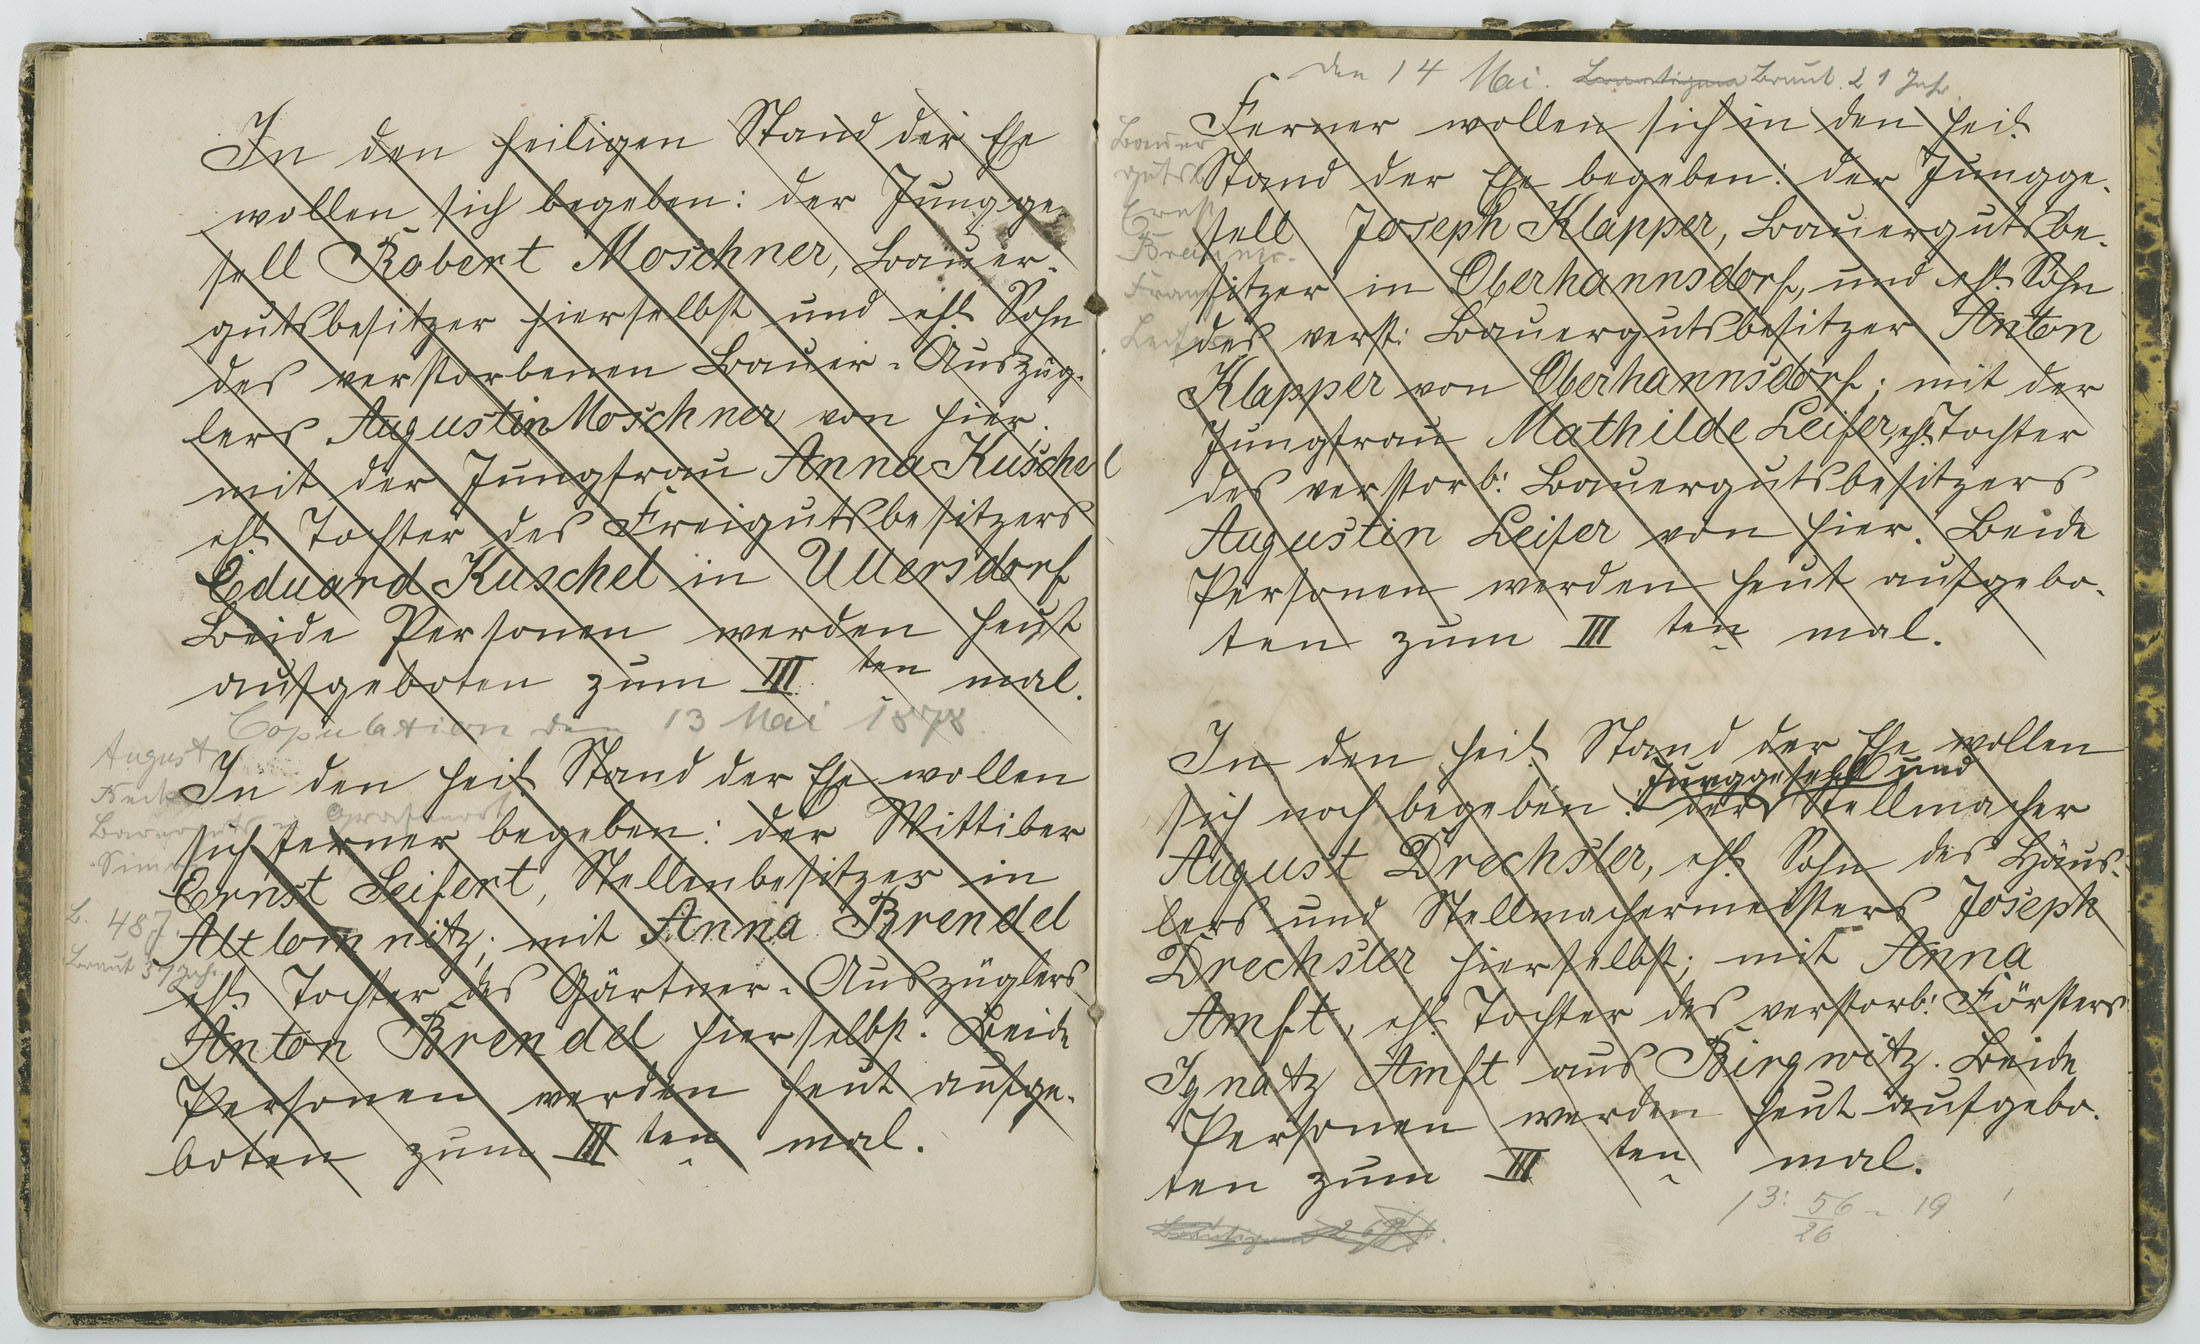 In den heiligen Stand der Ehe
wollen sich begeben: der Jungge-
sell Robert Moschner, Bauer-
gutsbesitzer hierselbst und ehl. Sohn
des verstorbenen Bauer-Auszüg-
lers Augustin Moschner von hier.
mit der Jungfrau Anna Kuschel
ehl. Tochter des Freigutsbesitzers
Eduard Kuschel in Ullersdorf
Beide Personen werden heut
aufgeboten zum III ten mal.
Copulation den 13 Mai 1878.
August
In den heil. Stand der Ehe wollen
sich ferner begeben: der Wittiber
Ernst Seifert, Stellenbesitzer in
Altlomnitz; mit Anna Brendel
B. 48 J.
Braut 37 Jah.
ehl. Tochter des Gärtner-Auszüglers
Anton Brendel hierselbst. Beide
Personen werden heut aufge-
boten zum III ten mal.
den 14 Mai. Braut 21 Jah
Ferner wollen sich in den heil.
Stand der Ehe begeben: der Jungge-
sell Joseph Klapper, Bauergutsbe-
sitzer in Oberhannsdorf, und ehl. Sohn
des verst: Bauergutsbesitzer Anton
Klapper von Oberhannsdorf; mit der
Jungfrau Mathilde Leifer, ehl. Tochter
des verstorb: Bauergutsbesitzers
Augustin Leifer von hier. Beide
Personen werden heut aufgebo-
ten zum III ten mal.
Bauer
gutsb
Ernst
Franz
In den heil. Stand der Ehe wollen
Junggesell und
sich noch begeben: der Stellmacher
August Drechsler, ehl. Sohn des Häus-
lers und Stellmachermeisters Joseph
Drechsler hierselbst; mit Anna
Amft, ehl. Tochter des verstorb: Försters
Ignatz Amft aus Birgwitz. Beide
Personen werden heut aufgebo-
ten zum III ten mal.
13: 56 - 19
26